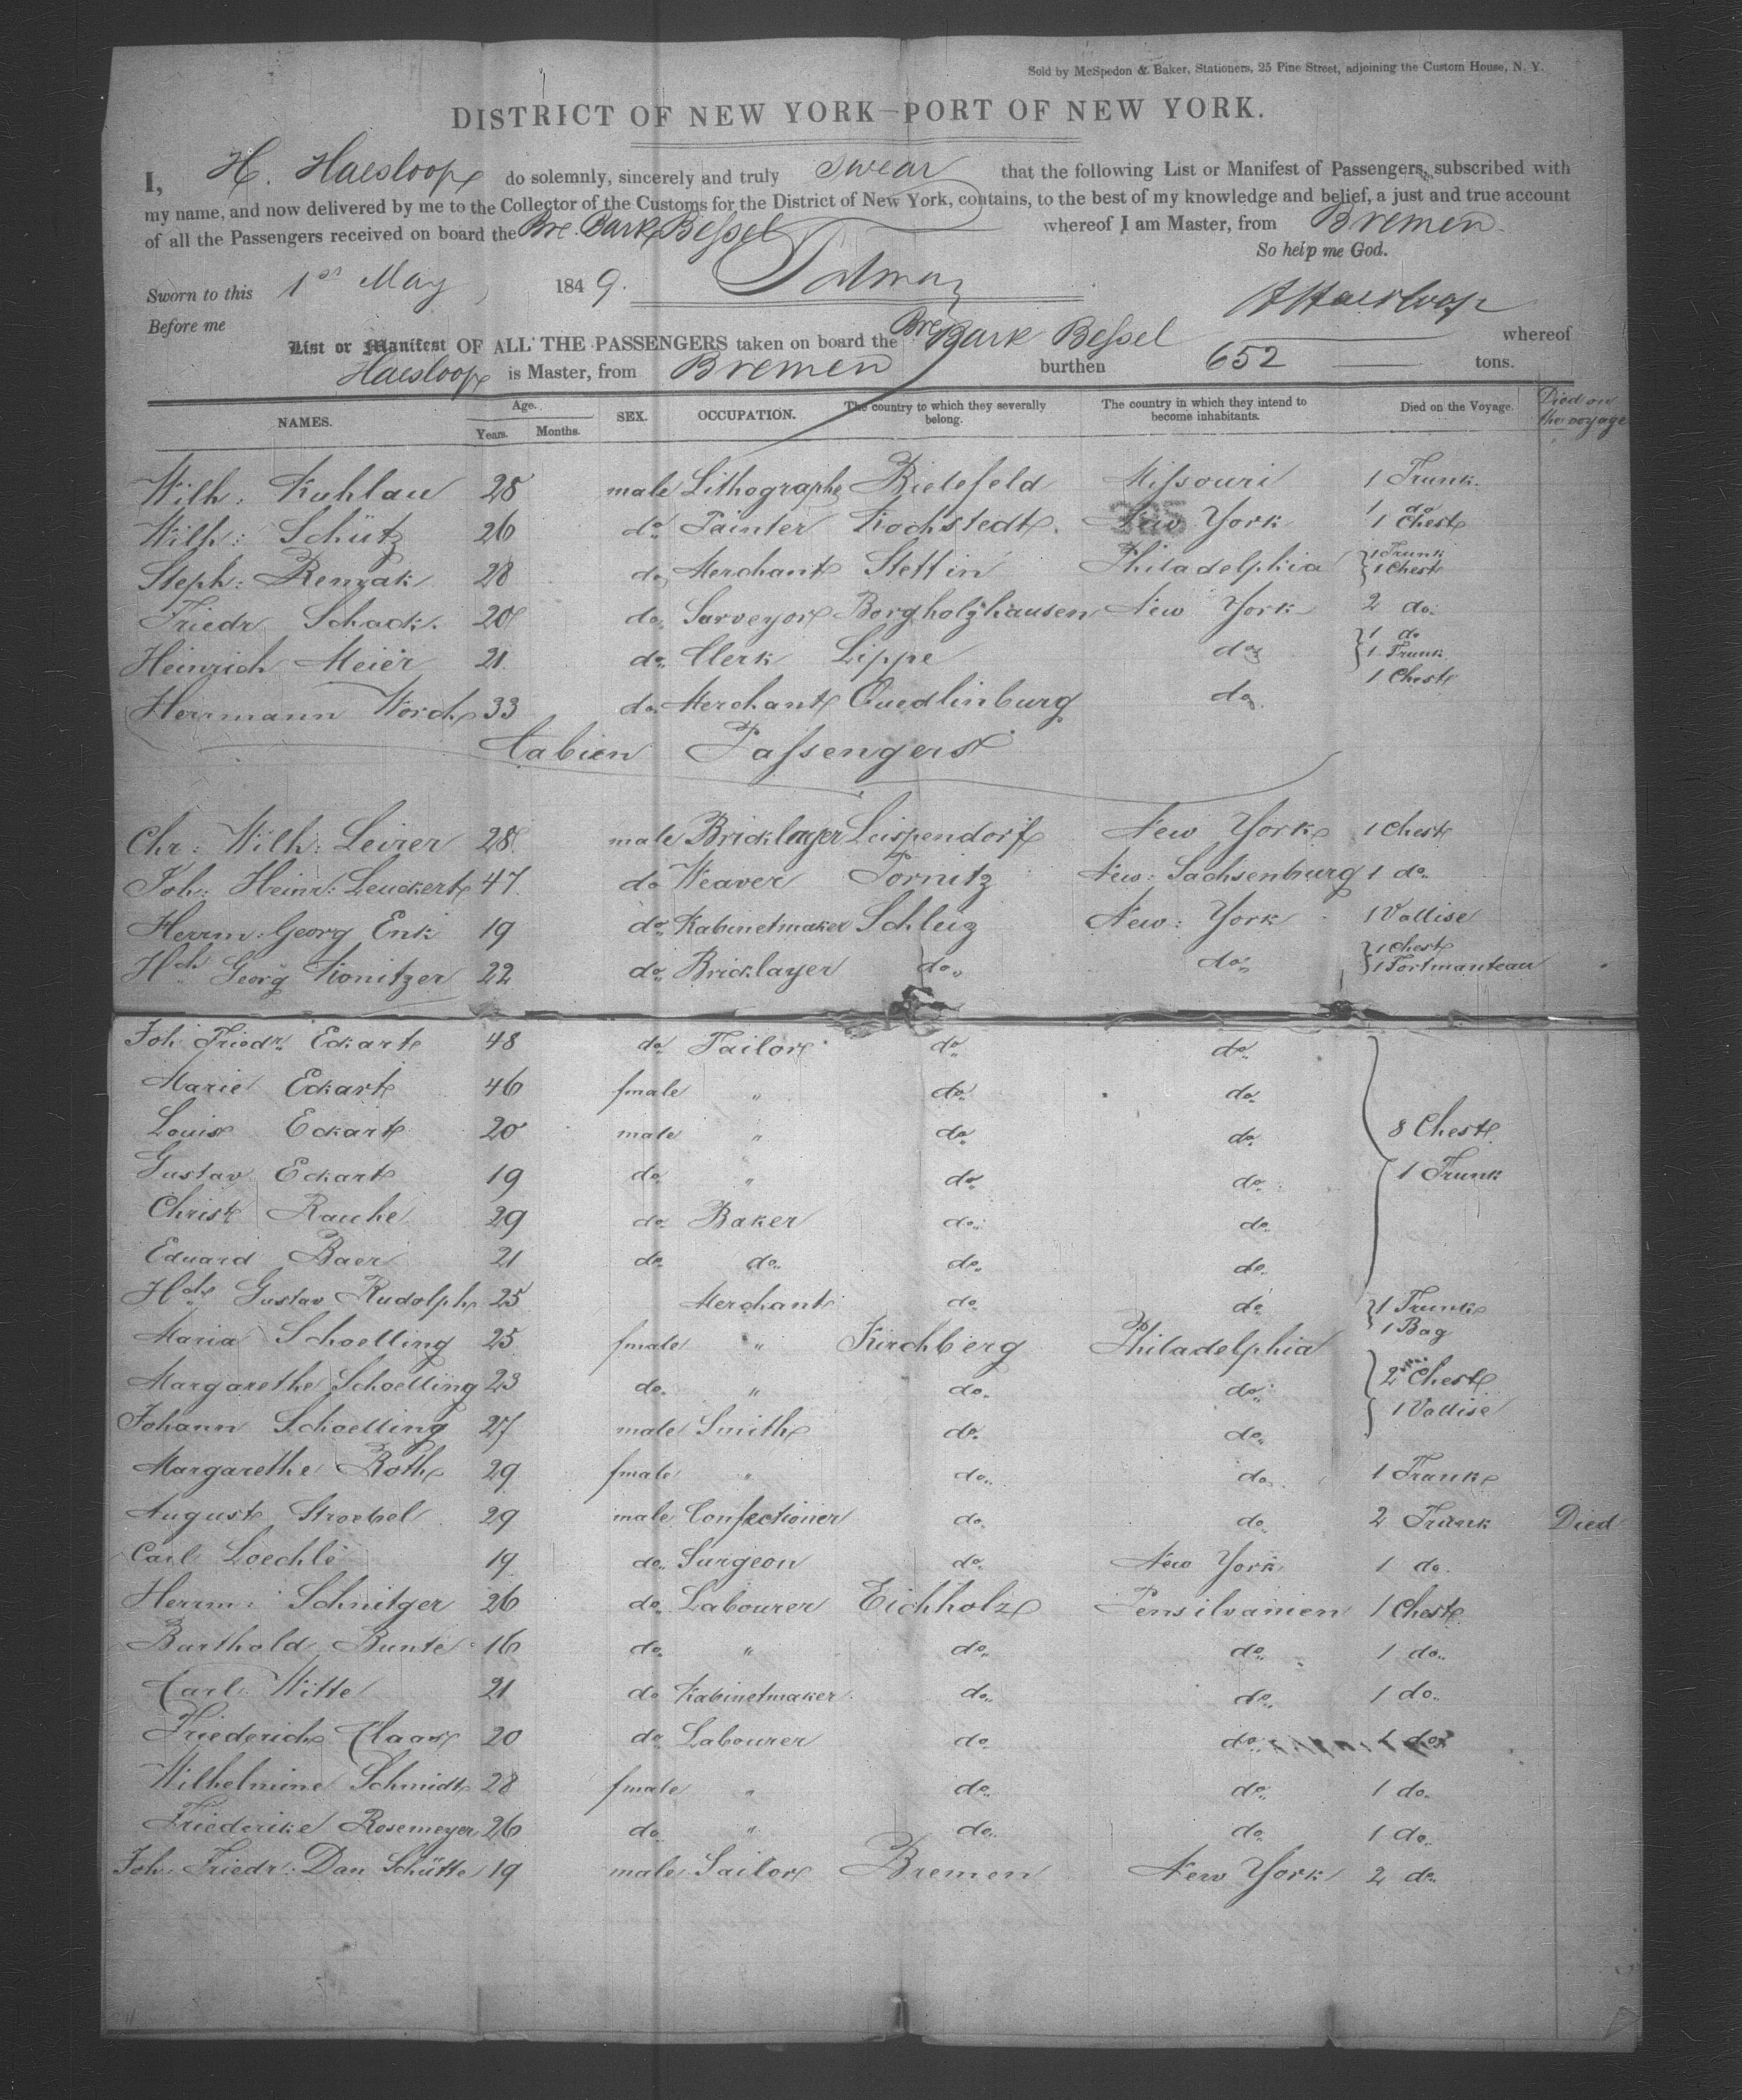 Sold by McSpedon & Baker, Stationers, 25 Pine Street, adjoining the Custom House, N. Y.
DISTRICT OF NEW YORK—PORT OF NEW YORK.
I, H. Haesloop do solemnly, sincerely and truly swear that the following List or Manifest of Passengers, subscribed with
my name, and now delivered by me to the Collector of the Customs for the District of New York, contains, to the best of my knowledge and belief, a just and true account
of all the Passengers received on board the Bre. Bark Bessel whereof I am Master, from Bremen
So help me God.
Sworn to this 1st May, 1849.
HHaesloop
Before me
List or Manifest OF ALL THE PASSENGERS taken on board the Bre Bark Bessel whereof
Haesloop is Master, from Bremen burthen 652 tons.
NAMES. Age. Years. Months. SEX. OCCUPATION. The country to which they severally belong. The country in which they intend to become inhabitants. Died on the Voyage. Died on the voyage
Wilh: Kuhlau 28 male Lithographe Bielefeld Missouri 1 Trunk
Wilh: Schütz 26 do Painter Kochstedt New York 1 do 1 Chest
Steph: Remak 28 do Merchant Stettin Philadelphia 1 Trunk 1 Chest
Friedr Schack 20 do Surveyor Borgholzhausen New York 2 do
Heinrich Meier 21 do Clerk Lippe do 1 do 1 Trunk
Herrmann Word 33 do Merchant Quedlinburg do 1 Chest
Cabien Passengers
Chr: Wilh: Leirer 28 male Bricklayer Leispendorf New York 1 Chest
Joh: Heinr: Leuckert 47 do Weaver Pornitz New: Sachsenburg 1 do
Herrm: Georg Enk 19 do Kabinetmaker Schleiz New: York 1 Vallise
Hch Georg Konitzer 22 do Bricklayer do do 1 Chest 1 Portmanteau
Joh Friedr Eckart 48 do Tailor do do
Marie Eckart 46 fmale " do do
Louis Eckart 20 male " do do 8 Chest
Gustav Eckart 19 do " do do 1 Trunk
Christ Rauhe 29 do Baker do do
Eduard Baer 21 do do do do
Hch Gustav Rudolph 25 Merchant do do 1 Trunk 1 Bag
Maria Schoelling 25 fmale " Kirchberg Philadelphia
Margarethe Schoelling 23 do " do do 2 Chest
Johann Schoelling 27 male Smith do do 1 Vallise
Margarethe Roth 29 fmale " do do 1 Trunk
August Stroebel 29 male Confectioner do do 2 Trunk Died
Carl Loechle 19 do Surgeon do New York 1 do
Herrm: Schnitger 26 do Labourer Eichholz Pensilvanien 1 Chest
Barthold Bunte 16 do " do do 1 do
Carl Witte 21 do Kabinetmaker do do 1 do
Friederich Claas 20 do Labourer do do 1 do
Wilhelmine Schmidt 28 fmale " do do 1 do
Friederike Rosemeyer 26 do " do do 1 do
Joh: Friedr: Dan Schütte 19 male Sailor Bremen New York 2 do